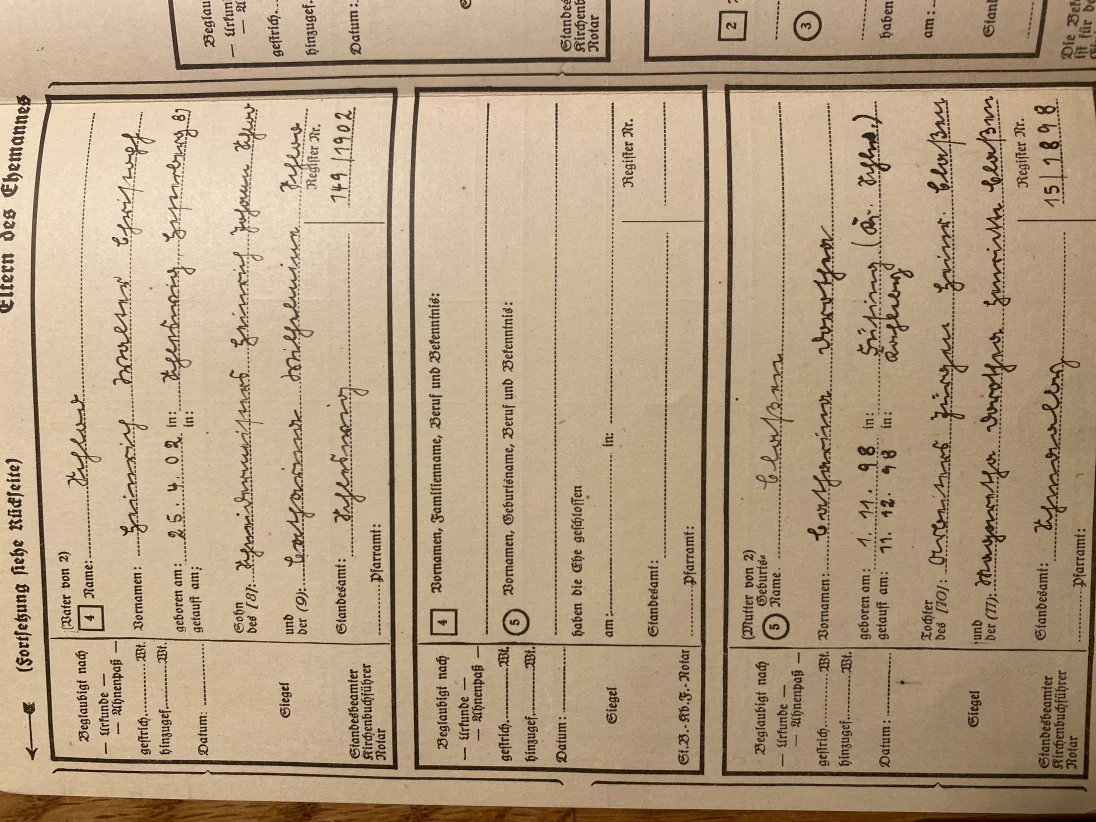 Eltern des Ehemannes
(Fortsetzung siehe Rückseite)
Beglaubigt nach
— Urkunde —
— Ahnenpaß —
gestrich. Wt.
hinzugef. Wt.
Datum:
Siegel
Standesbeamter
Kirchenbuchführer
Notar
(Vater von 2)
4 Name:
Vornamen: Heinrich Walter Christoph
geboren am: 25. 4. 02 in: Schleswig
getauft am: in:
Sohn
des (8): Heinrich Johann
und
der (9): Catharina Wilhelmine
Standesamt: Schleswig
Register Nr.
149/1902
Pfarramt:
Beglaubigt nach
— Urkunde —
— Ahnenpaß —
gestrich. Wt.
hinzugef. Wt.
Datum:
Siegel
St.B.-Kb.F.-Notar
4 Vornamen, Familienname, Beruf und Bekenntnis:
5 Vornamen, Geburtsname, Beruf und Bekenntnis:
haben die Ehe geschlossen
am: in:
Standesamt:
Register Nr.
Pfarramt:
Beglaubigt nach
— Urkunde —
— Ahnenpaß —
gestrich. Wt.
hinzugef. Wt.
Datum:
Siegel
Standesbeamter
Kirchenbuchführer
Notar
(Mutter von 2)
5 Geburts-
Name: Claßen
Vornamen: Catharina Dorothea
geboren am: 1. 11. 98 in: Hüsing (Kr. Schlesw.)
getauft am: 11. 12. 98 in:
Tochter
des (10): Jürgen Heinr. Claßen
und
der (11): Margaretha Dorothea Henriette Claßen
Standesamt:
Register Nr.
15/1898
Pfarramt:
Beglau
— Urkun
— A
gestrich.
hinzugef.
Datum:
Standes
Kirchenb
Notar
2
3
haben
am:
Stand
Die Bek
ist für de